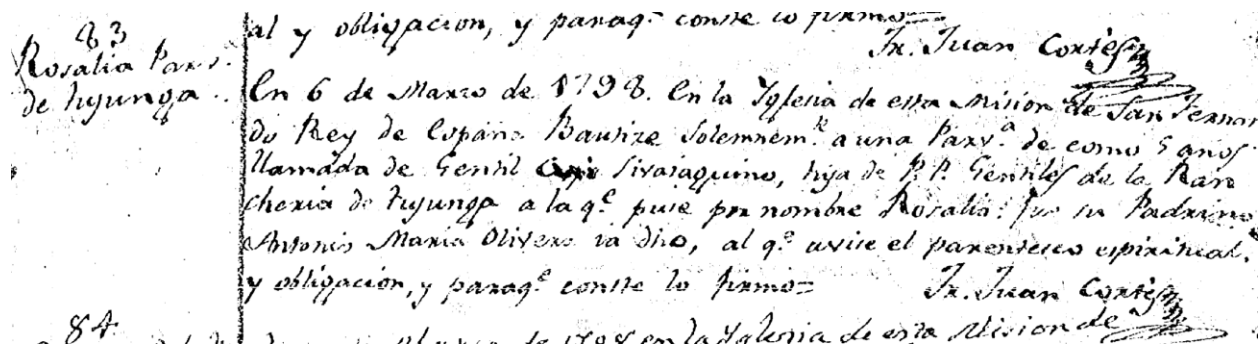 al y obligacion, y paraq.e conste lo firmo=
Fr. Juan Cortès
83
Rosalia Parv.
de Tujunga.
En 6 de Marzo de 1798. En la Yglesia de esta Mision de San Fernan
do Rey de España Bautize Solemnem.te a una Parv.a de como 5 anos
llamada de Gentil Sivaiaquino, hija de P.P. Gentiles de la Ran
cheria de Tujunga a la q.e puse por nombre Rosalia: fue su Padrino
Antonio Maria Olivera ia dho, al q.e avise el parentesco espiritual,
y obligacion, y paraq.e conste lo firmo=
Fr. Juan Cortès
84
de 1798 en la Yglesia de esta Mision de